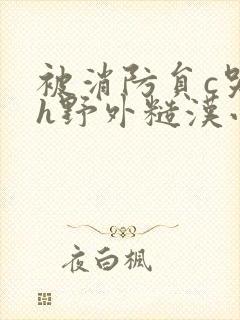 被消防員c
h野外糙漢
夜白楓